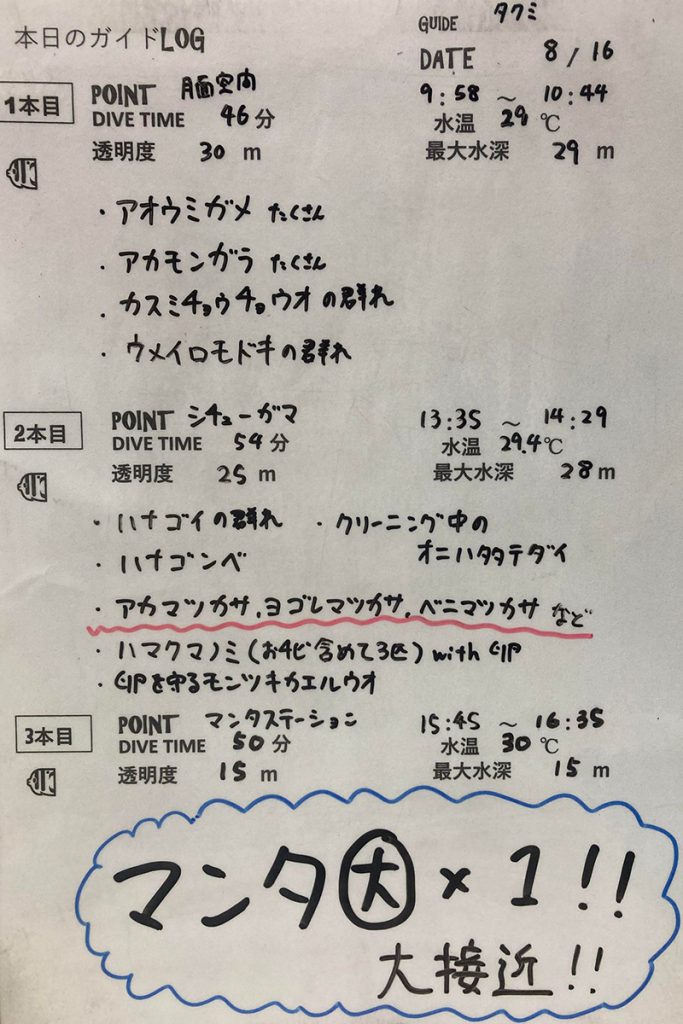 本日のガイドLOG
GUIDE タクミ
DATE 8/16
1本目 POINT 月面空間 9:58 ～ 10:44
DIVE TIME 46分 水温 29℃
透明度 30 m 最大水深 29 m
・アオウミガメ たくさん
・アカモンガラ たくさん
・カスミチョウチョウウオの群れ
・ウメイロモドキの群れ
2本目 POINT シチューガマ 13:35 ～ 14:29
DIVE TIME 54分 水温 29.4℃
透明度 25 m 最大水深 28m
・ハナゴイの群れ ・クリーニング中の
オニハタタテダイ
・ハナゴンベ
・アカマツカサ,ヨゴレマツカサ,ベニマツカサ など
・ハマクマノミ(おチビ含めて3匹) with 卵
・卵を守るモンツキカエルウオ
3本目 POINT マンタステーション 15:45 ～ 16:35
DIVE TIME 50分 水温 30℃
透明度 15 m 最大水深 15 m
マンタ大×1!!
大接近!!